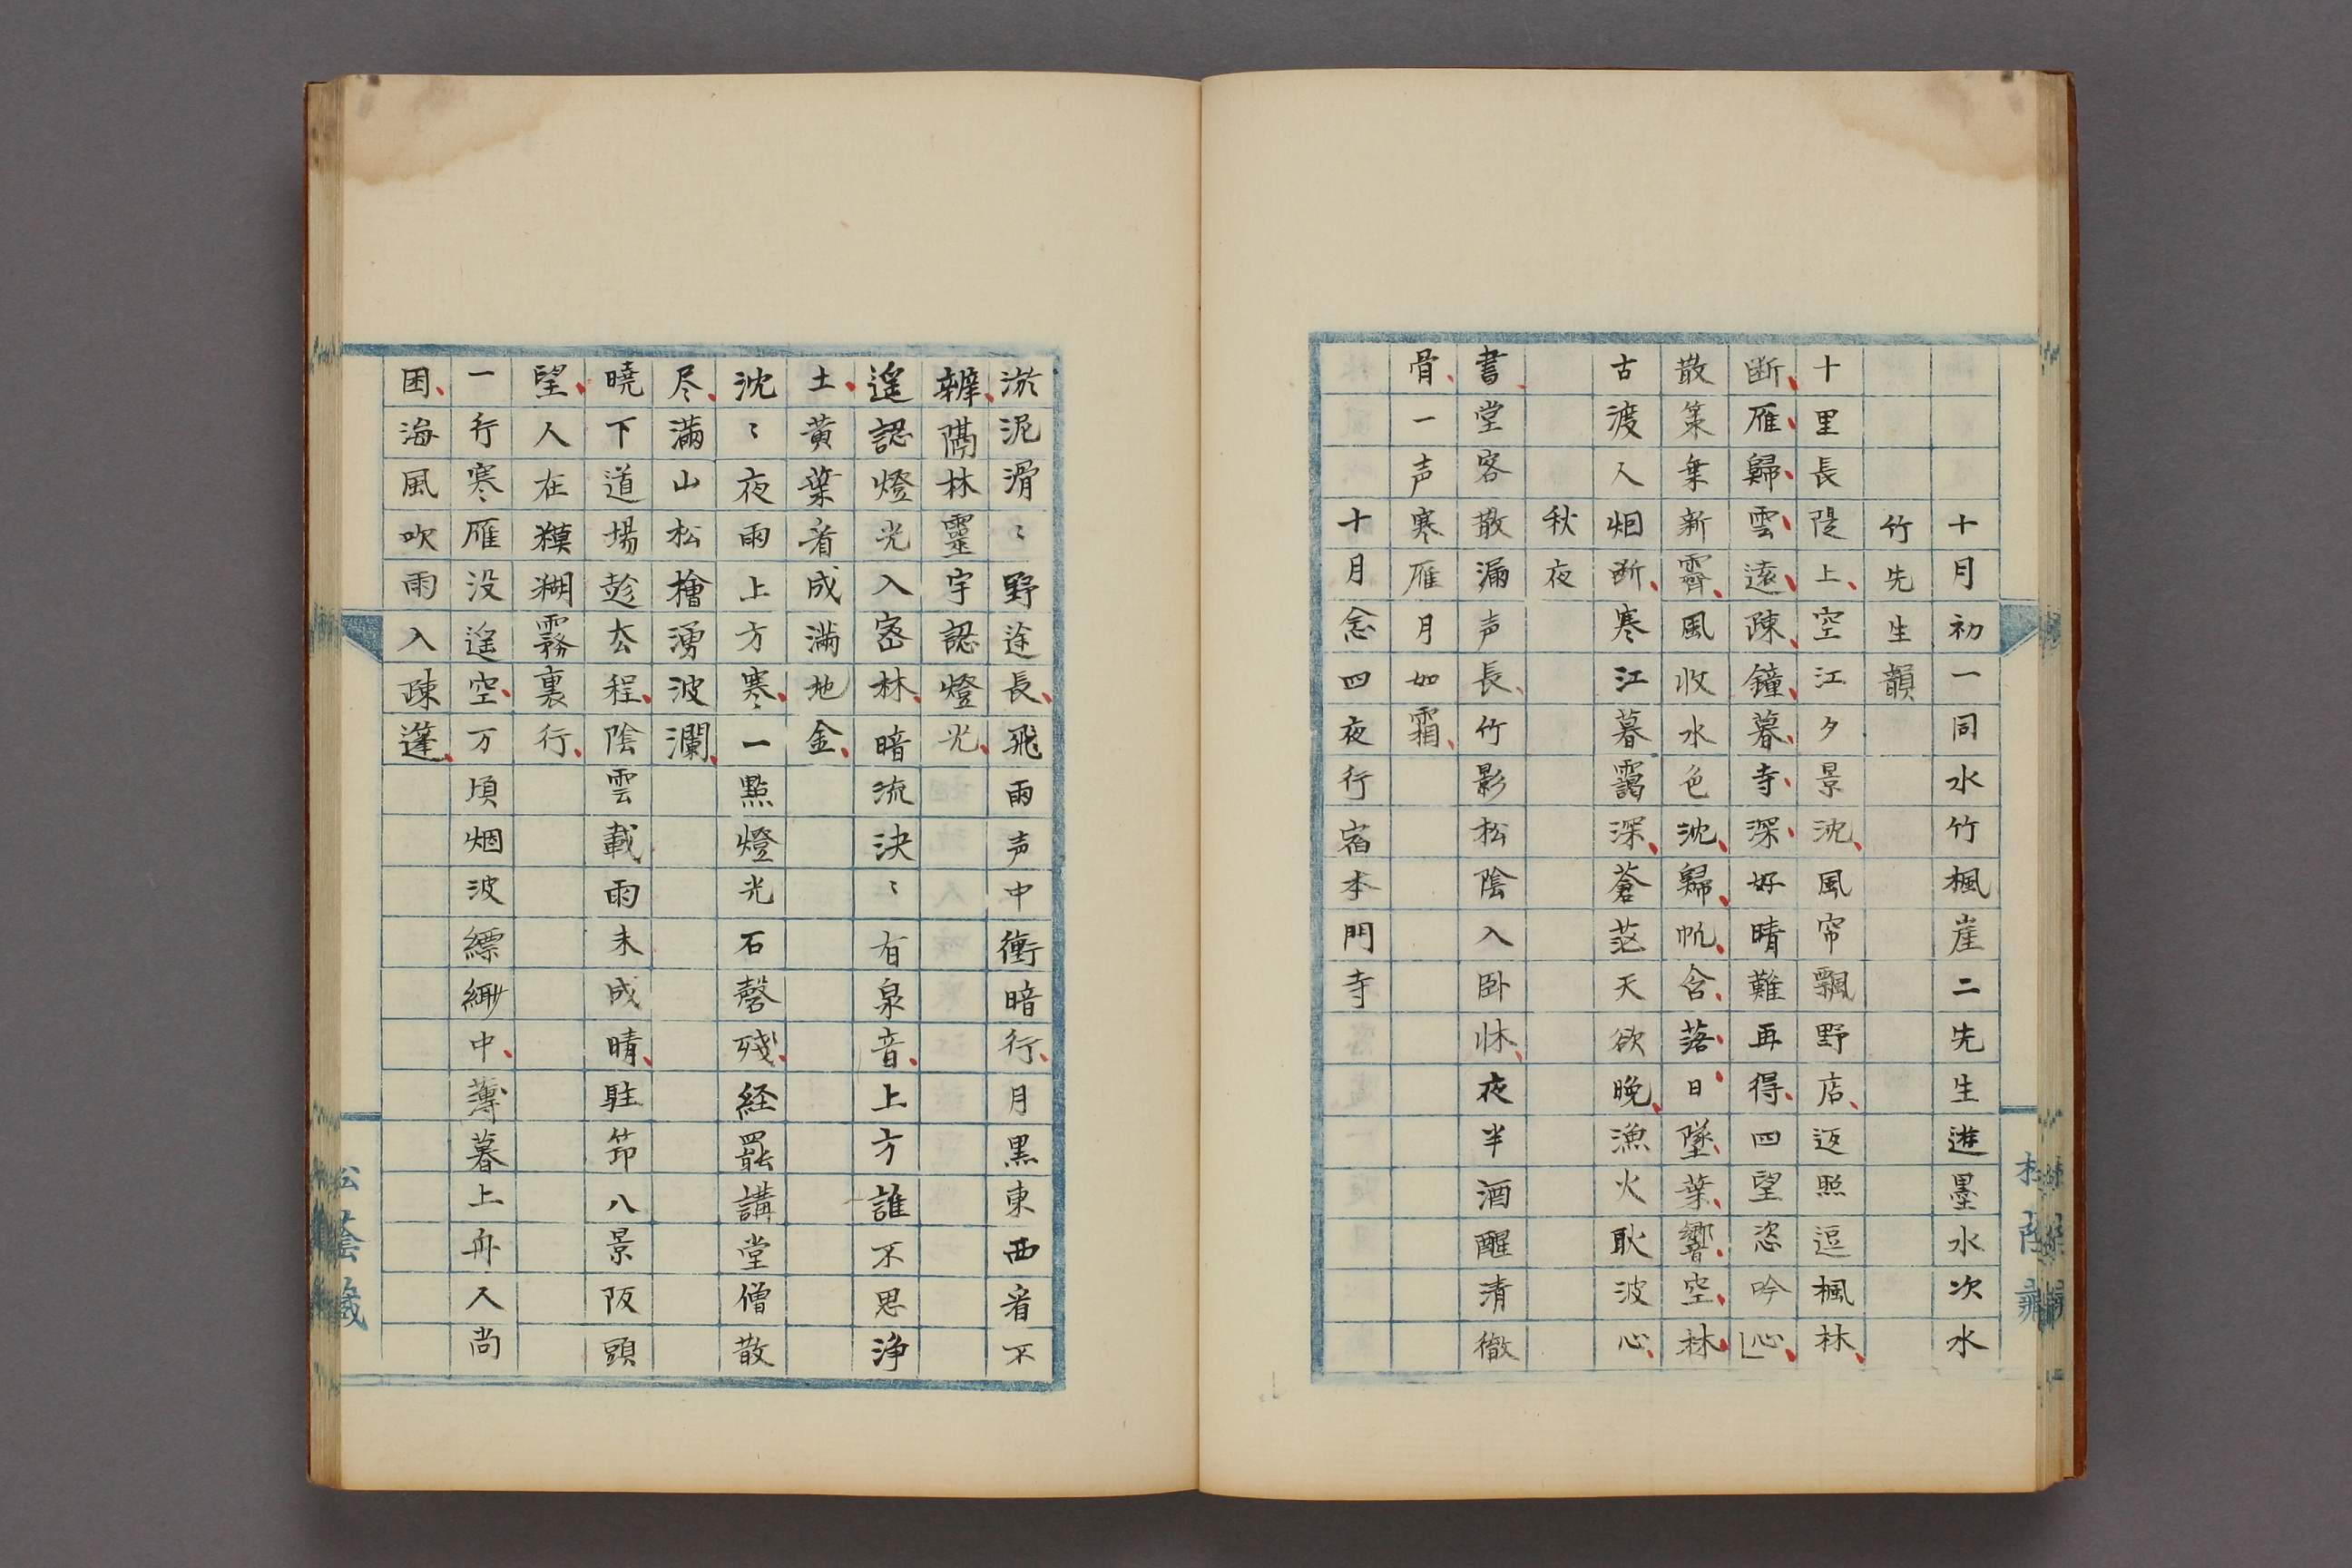 十月初一同水竹楓崖二先生遊墨水次水
竹先生韻
十里長隄上空江夕景沈風帘飄野店返照逗楓林
断雁歸雲遠踈鐘暮寺深好晴難再得四望恣吟心
散策乗新霽風收水色沈歸帆含落日墜葉響空林
古渡人烟断寒江暮靄深蒼茫天欲晚漁火耿波心
秋夜
書堂客散漏声長竹影松陰入卧床夜半酒醒清徹
骨一声寒雁月如霜
十月念四夜行宿本門寺
淤泥滑〻野途長飛雨声中衝暗行月黒東西看不
辧隔林靈宇認燈光
遥認燈光入密林暗流決〻有泉音上方誰不思浄
土黄葉看成満地金
沈〻夜雨上方寒一點燈光石磬残経罷講堂僧散
尽満山松檜湧波瀾
曉下道場趁去程陰雲載雨未成晴駐笻八景阪頭
望人在糢糊霧裏行
一行寒雁没遥空万頃烟波縹緲中薄暮上舟人尚
困海風吹雨入踈篷
松蔭蔵